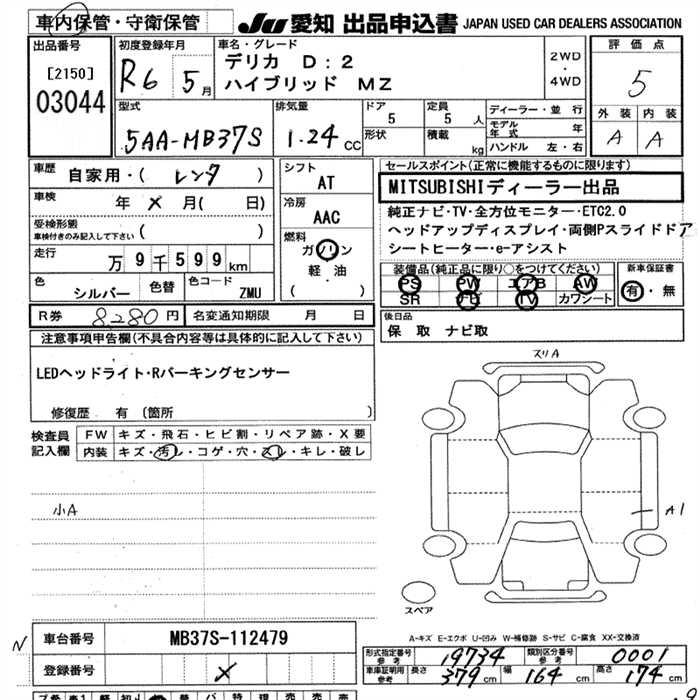 車内保管・守衛保管
JU 愛知 出品申込書 JAPAN USED CAR DEALERS ASSOCIATION
出品番号
[2150]
03044
初度登録年月
R6 5月
車名・グレード
デリカ D:2
ハイブリッド MZ
2WD
・
4WD
評価点
5
外装 内装
A A
型式
5AA-MB37S
排気量
1.24 CC
ドア
5
形状
定員
5 人
積載
kg
ディーラー・並行
モデル年式 年
ハンドル 左・右
車歴
自家用・( レンタ )
車検
年 × 月( 日)
受検形態
車検付きのみ記入して下さい ( )
走行
万 9 千 5 9 9 km
色
シルバー
色替
色コード
ZMU
シフト
AT
冷房
AAC
燃料
ガソリン
軽・油
( )
セールスポイント(正常に機能するものに限ります)
MITSUBISHIディーラー出品
純正ナビ・TV・全方位モニター・ETC2.0
ヘッドアップディスプレイ・両側Pスライドドア
シートヒーター・e-アシスト
装備品(純正品に限り○をつけてください)
PS PW エアB AW
SR ナビ TV カワシート
新車保証書
有・無
R券 8,280円 名変通知期限 月 日
後日品
保 取 ナビ取
注意事項申告欄(不具合内容等は具体的に記入して下さい)
LEDヘッドライト・Rパーキングセンサー
修復歴 有 (箇所 )
検査員
記入欄
FW キズ・飛石・ヒビ割・リペア跡・X要
内装 キズ・汚レ・コゲ・穴・スレ・キレ・破レ
小A
スリA
A1
スペア
A-キズ E-エクボ U-凹み W-補修跡 S-サビ C-腐食 XX-交換済
N
車台番号 MB37S-112479
登録番号 ×
型式指定番号
参考
19734
類別区分番号
参考
0001
車庫証明用
参考
長さ 379 cm
幅 164 cm
高さ 174 cm